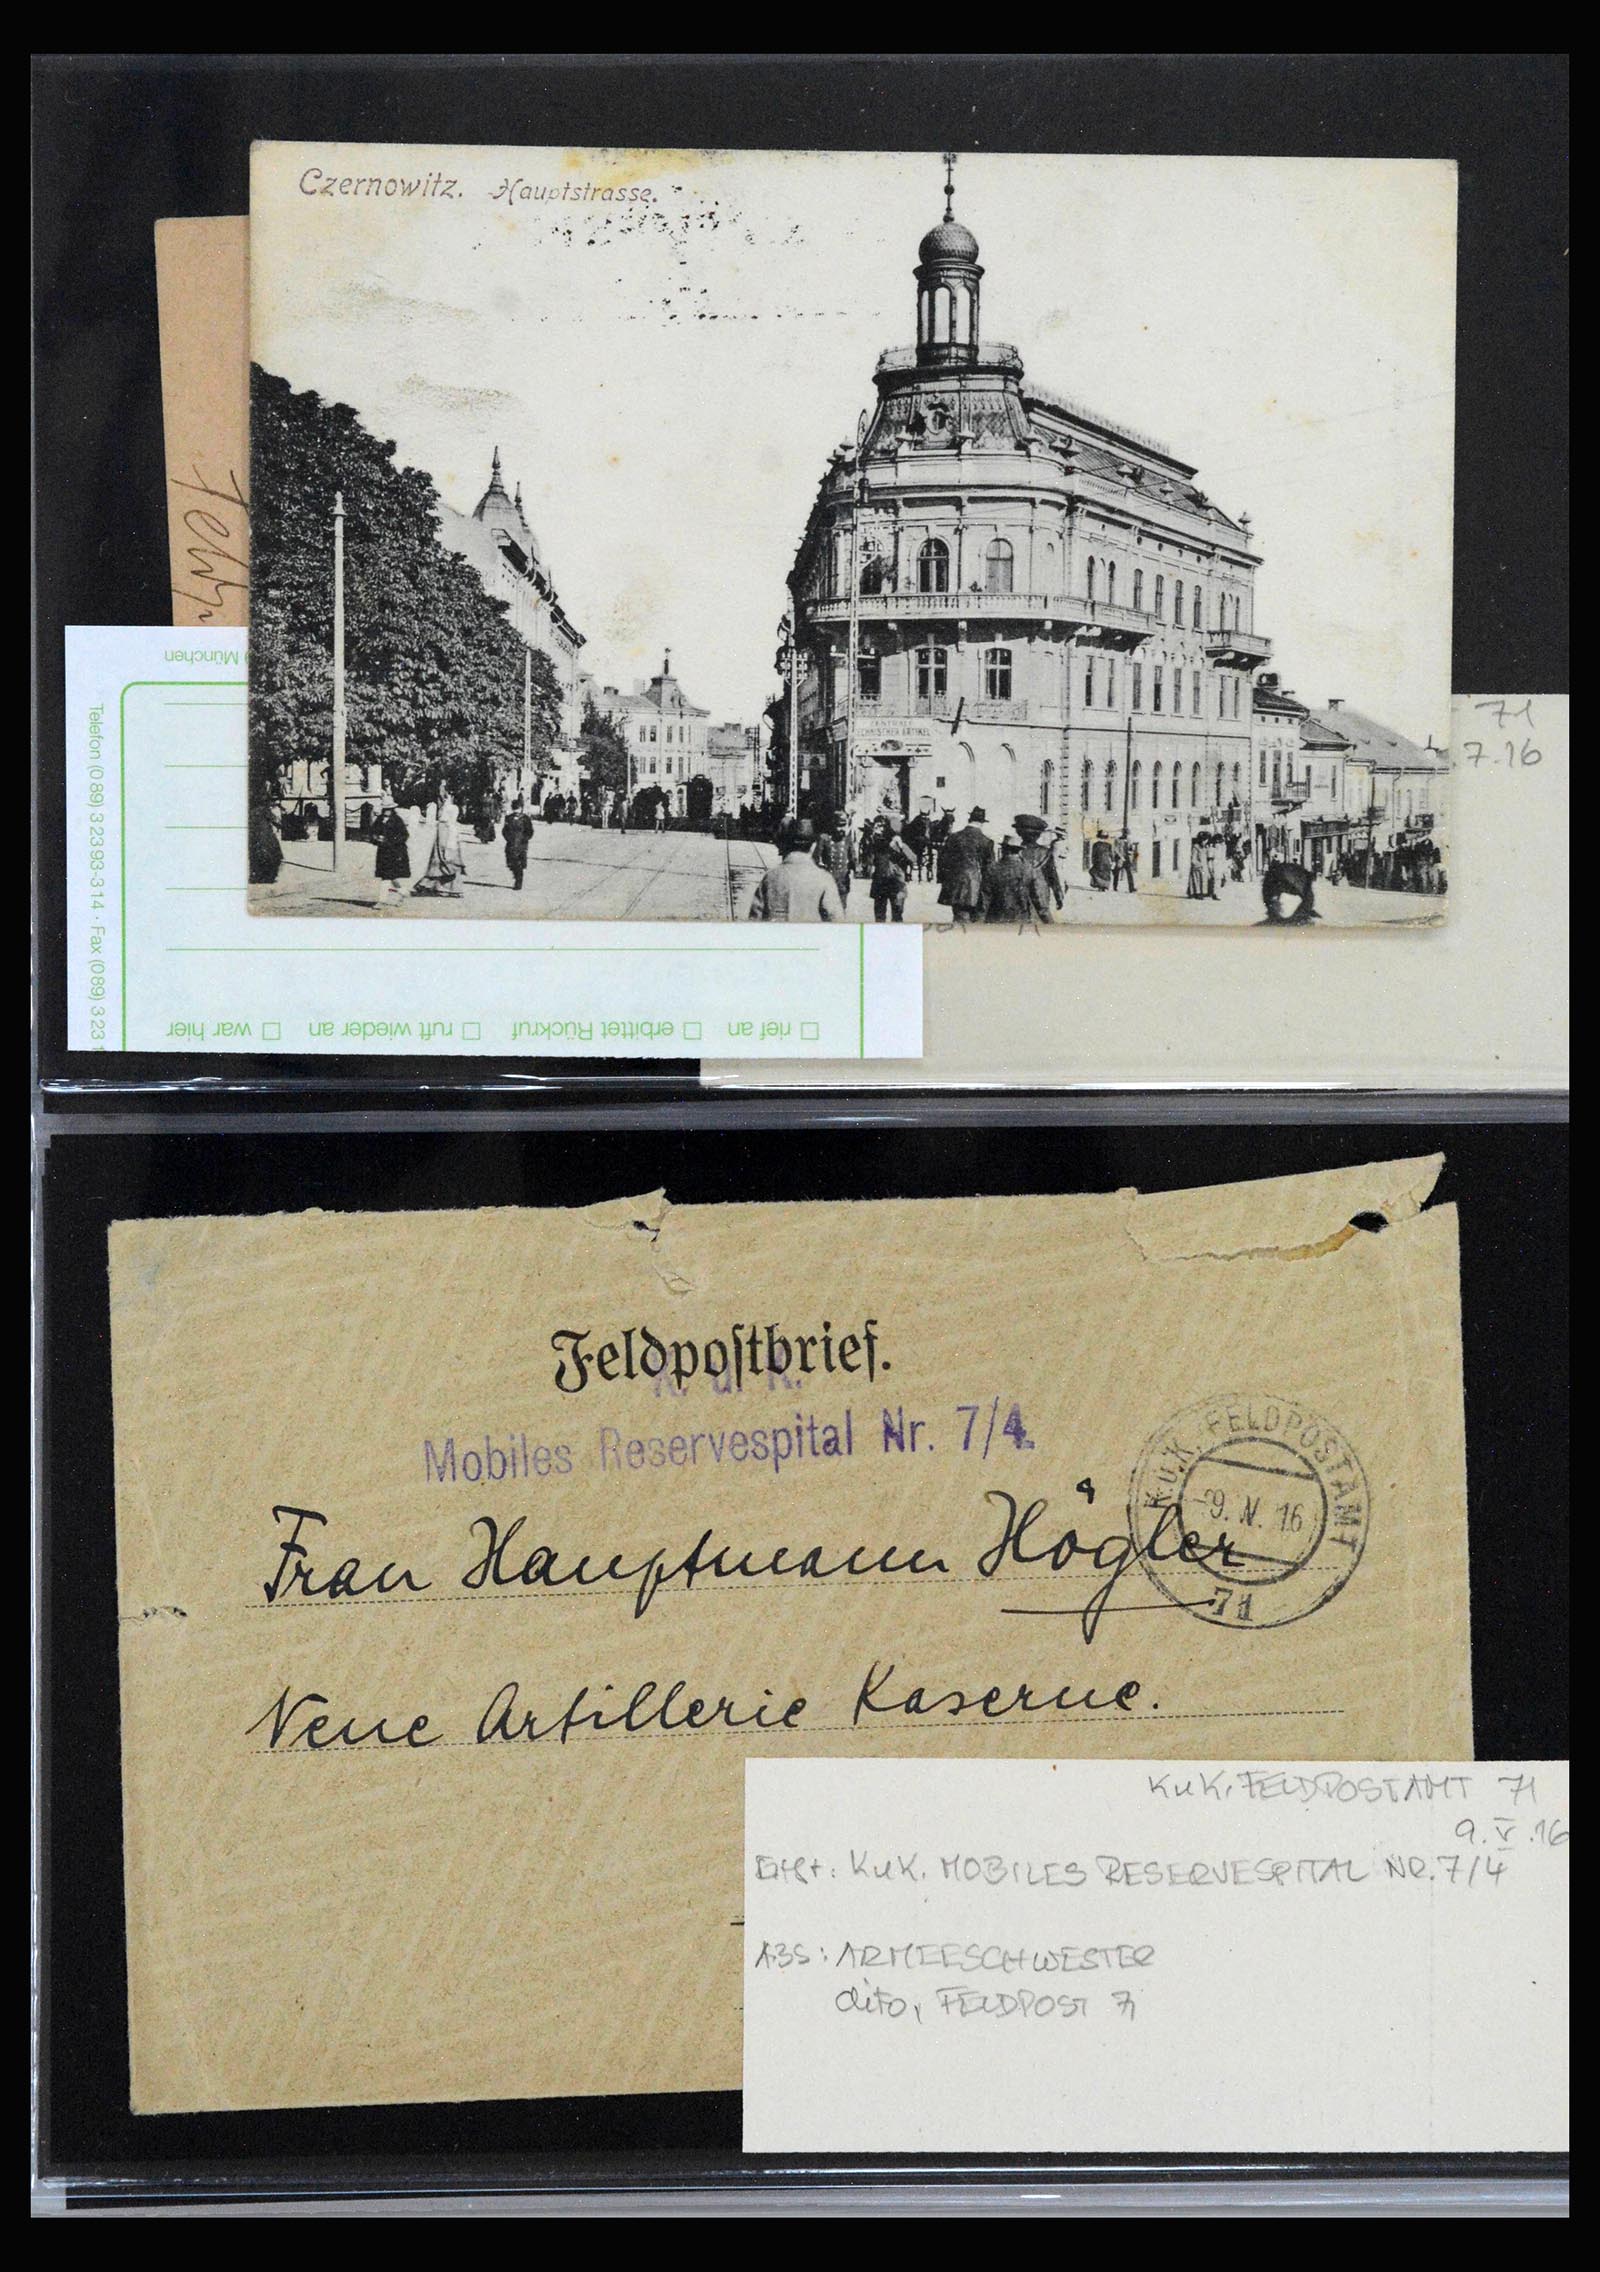 Czernowitz. Hauptstrasse.
ZENTRALE
TECHNISCHER ARTIKEL
71
7.16
München
Telefon (0 89) 3 23 93-314 · Fax (0 89) 3 23 1
rief an erbittet Rückruf ruft wieder an war hier
Feldpostbrief.
K. u. K.
Mobiles Reservespital Nr. 7/4.
K.u.K. FELDPOSTAMT
-9. V. 16
71
Frau Hauptmann Högler
Neue Artillerie Kaserne.
K.u.K. FELDPOSTAMT 71
9.V.16
K.u.K. MOBILES RESERVESPITAL NR. 7/4
ABS: ARMEESCHWESTER
dito, FELDPOST 71